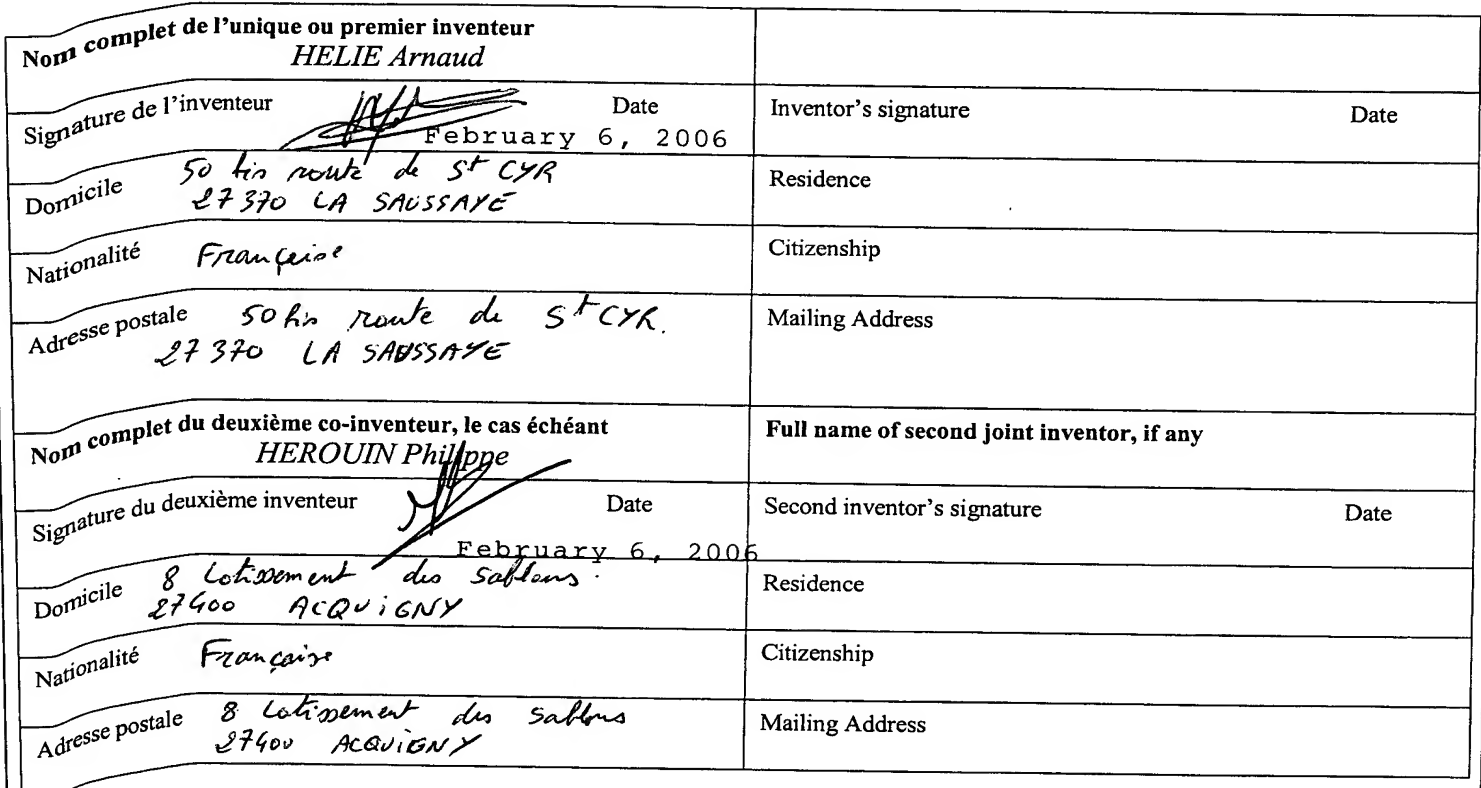 Nom complet de l'unique ou premier inventeur
HELIE Arnaud
Signature de l'inventeur Date
February 6, 2006
Inventor's signature Date
Domicile 50 bis route de St CYR
27370 LA SAUSSAYE
Residence
Nationalité Française
Citizenship
Adresse postale 50 bis route de St CYR.
27370 LA SAUSSAYE
Mailing Address
Nom complet du deuxième co-inventeur, le cas échéant
HEROUIN Philippe
Full name of second joint inventor, if any
Signature du deuxième inventeur Date
February 6, 2006
Second inventor's signature Date
Domicile 8 Lotissement des Sablons.
27400 ACQUIGNY
Residence
Nationalité Française
Citizenship
Adresse postale 8 Lotissement des Sablons
27400 ACQUIGNY
Mailing Address